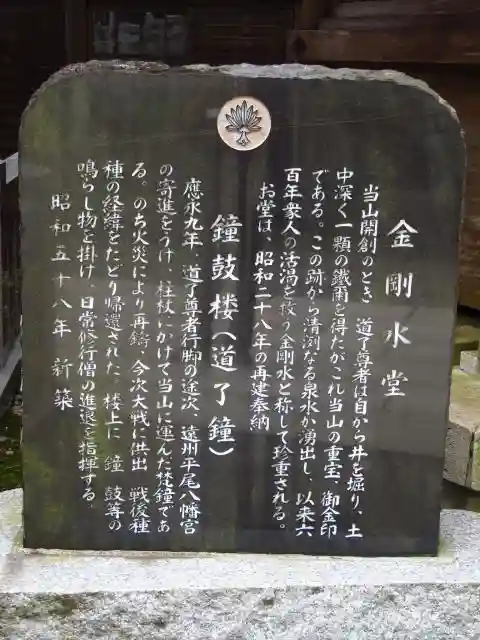 金剛水堂
当山開創のとき 道了尊者は自から井を堀り、土
中深く一顆の鐵爾を得たがこれ当山の重宝、御金印
である。この跡から清冽なる泉水か湧出し、以来六
百年衆人の活渇を救う金剛水と称して珍重される。
お堂は、昭和二十八年の再建奉納
鐘鼓楼(道了鐘)
應永九年 道了尊者行脚の途次、遠州平尾八幡宮
の寄進をうけ、柱杖にかけて当山に運んだ梵鐘であ
る。のち火災により再鋳 今次大戦に供出 戦後種
種の経緯をたどり帰還された。楼上に 鐘 鼓等の
鳴らし物を掛け、日常修行僧の進退を指揮する。
昭和五十八年 新築